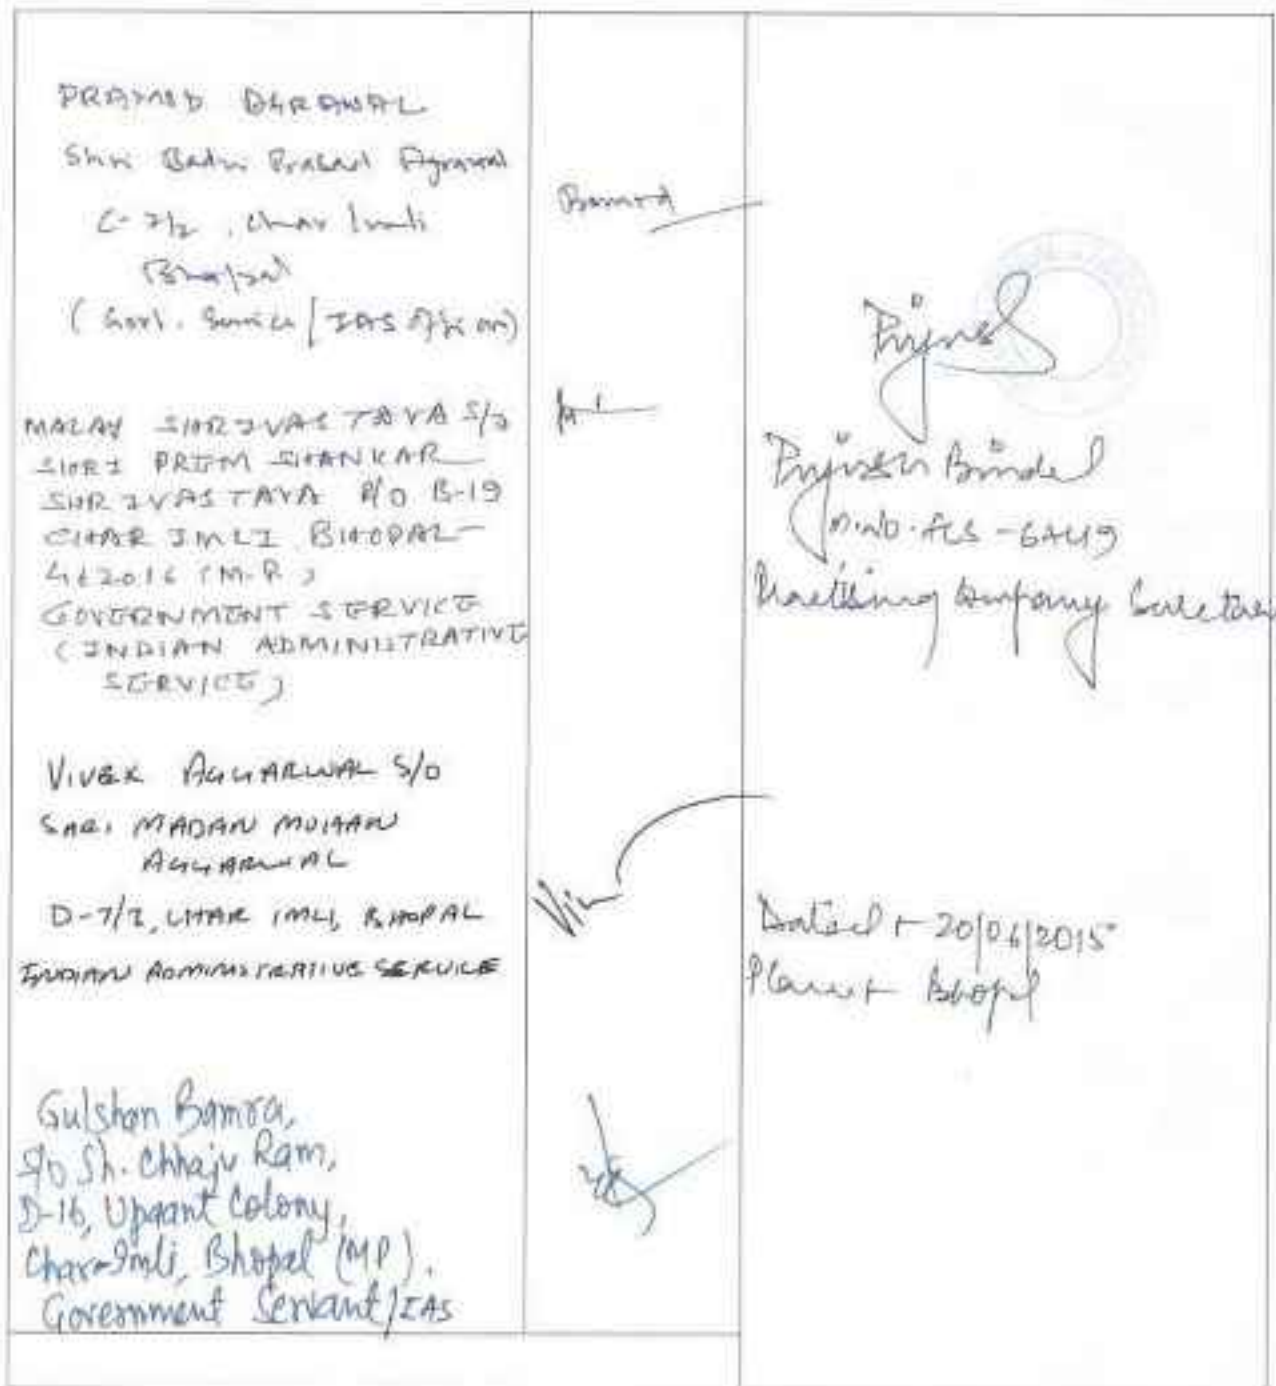 PRAMOD AGRAWAL
Shri Badri Prasad Agrawal
C-7/2, Char Imli
Bhopal
(Govt. Service / IAS Officer)
MALAY SHRIVASTAVA S/O
SHRI PREM SHANKAR
SHRIVASTAVA R/O B-19
CHAR IMLI BHOPAL-
462016 (M.P.)
GOVERNMENT SERVICE
(INDIAN ADMINISTRATIVE
SERVICE)
VIVEK AGGARWAL S/O
SHRI MADAN MOHAN
AGGARWAL
D-7/2, CHAR IMLI, BHOPAL
INDIAN ADMINISTRATIVE SERVICE
Gulshan Bamra,
S/o Sh. Chhaju Ram,
D-16, Upaant Colony,
Char-Imli, Bhopal (MP).
Government Servant/IAS
Piyush Bindal
M.NO. FCS - 6749
Practising Company Secretary
Dated :- 20/06/2015
Place :- Bhopal